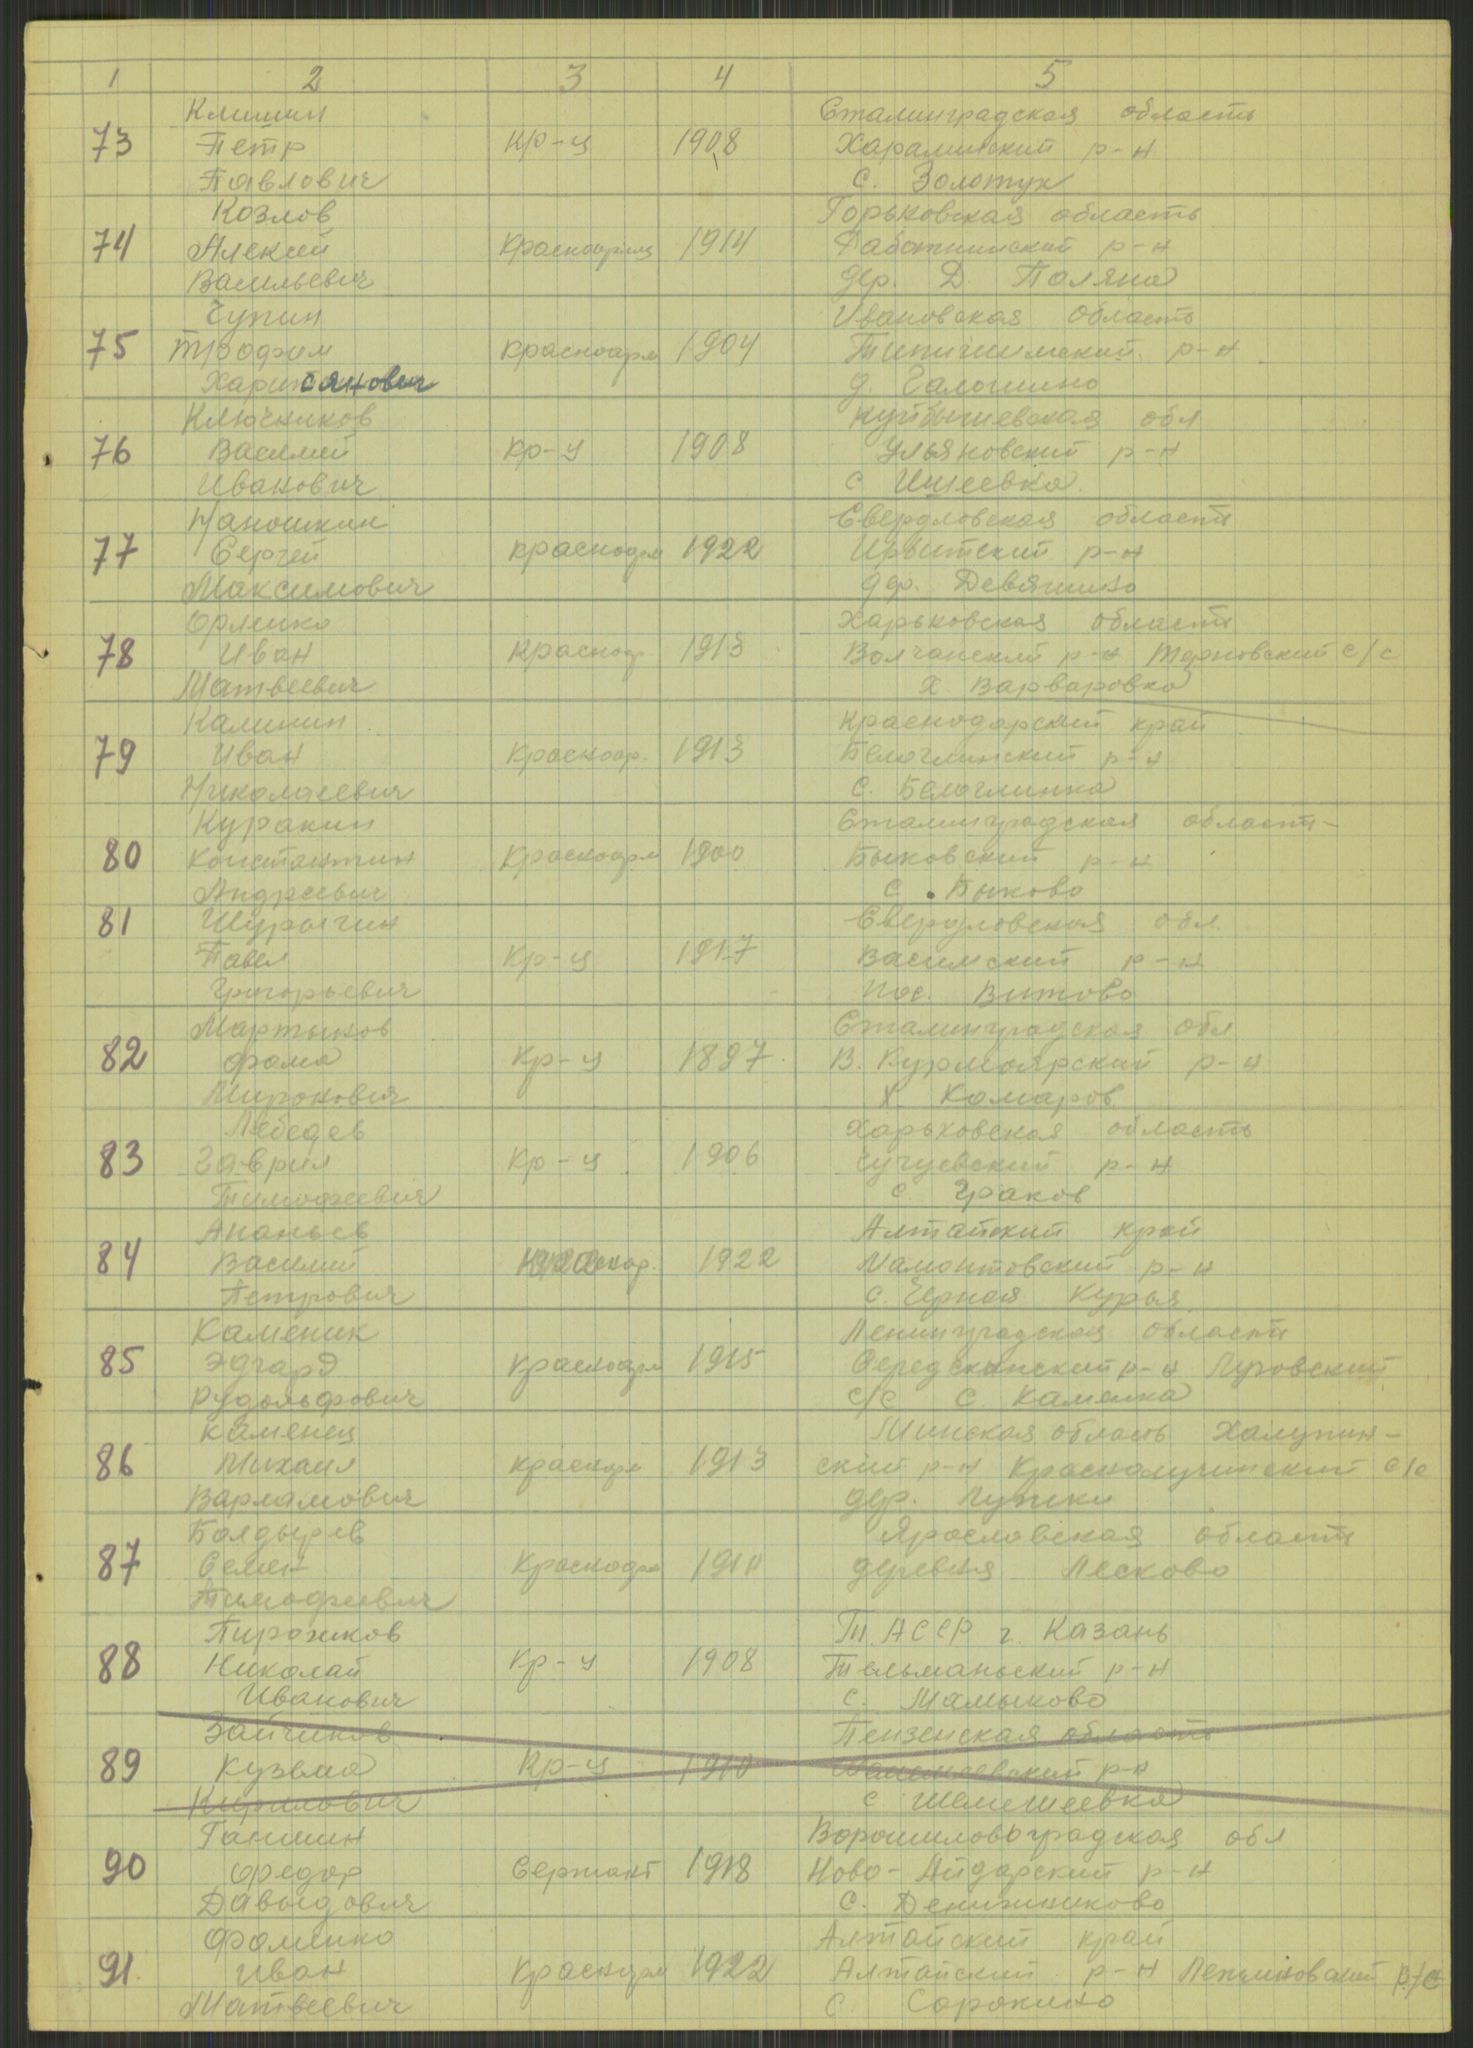 1 2 3 4 5
Климин Сталинградская область
73 Петр Кр-ц 1908 р-н
Павлович с. Золотух
Козлов Горьковская область
74 Алексей Красноармец 1914 р-н
Васильевич дер. Д. Поляна
Чупин Ивановская область
75 Трофим Красноарм 1904 р-н
д. Галошино
Ключников Куйбышевская обл
76 Василий Кр-ц 1908 Ульяновский р-н
Иванович с Ишеевка
Маношкин Свердловская область
77 Сергей Красноарм 1922 Ирбитский р-н
Максимович дер. Девяшино
Орленко Харьковская область
78 Иван Красноар. 1913 Волчанский р-н Терновский с/с
Матвеевич х. Варваровка
Калинин Краснодарский край
79 Иван Красноар. 1913 Белоглинский р-н
Николаеевич с. Белоглинка
Куракин Сталинградская область
80 Константин Красноарм 1900 Быковский р-н
Андреевич с. Быково
81 Шурыгин Свердловская обл.
Павел Кр-ц 1917 р-н
Григорьевич пос.
Мартынов Сталинградская обл
82 Фома Кр-ц 1897 В. Курмоярский р-н
Миронович х. Комаров
Лебедев Харьковская область
83 Гаврил Кр-ц 1906 Чугуевский р-н
Тимофеевич с. Граков
Ананьев Алтайский край
84 Василий 1922 Мамонтовский р-н
Петрович с. Черная Курья
Каменик Ленинградская область
85 Эдгард Красноарм 1915 р-н
Рудольфович с/с с. Каменка
Каменец Минская область Халупин-
86 Михаил Красноарм 1913 ский р-н Краснолучинский с/с
Варламович дер.
Болдырев Ярославская область
87 Семен Красноарм 1911 деревня Лесково
Тимофеевич
Пирожков Т. АССР г. Казань
88 Николай Кр-ц 1908 Тельманьский р-н
Иванович с. Мамыково
Зайчиков Пензенская область
89 Кузьма Кр-ц 1910 р-н
Кирилович с Шемышеевка
Ганшин Ворошиловоградская обл
90 Федор Сержант 1918 Ново-Айдарский р-н
Давыдович с. Денижниково
Фоменко Алтайский край
91. Иван Красноарм 1922 Алтайский р-н
Матвеевич с. Сорокино